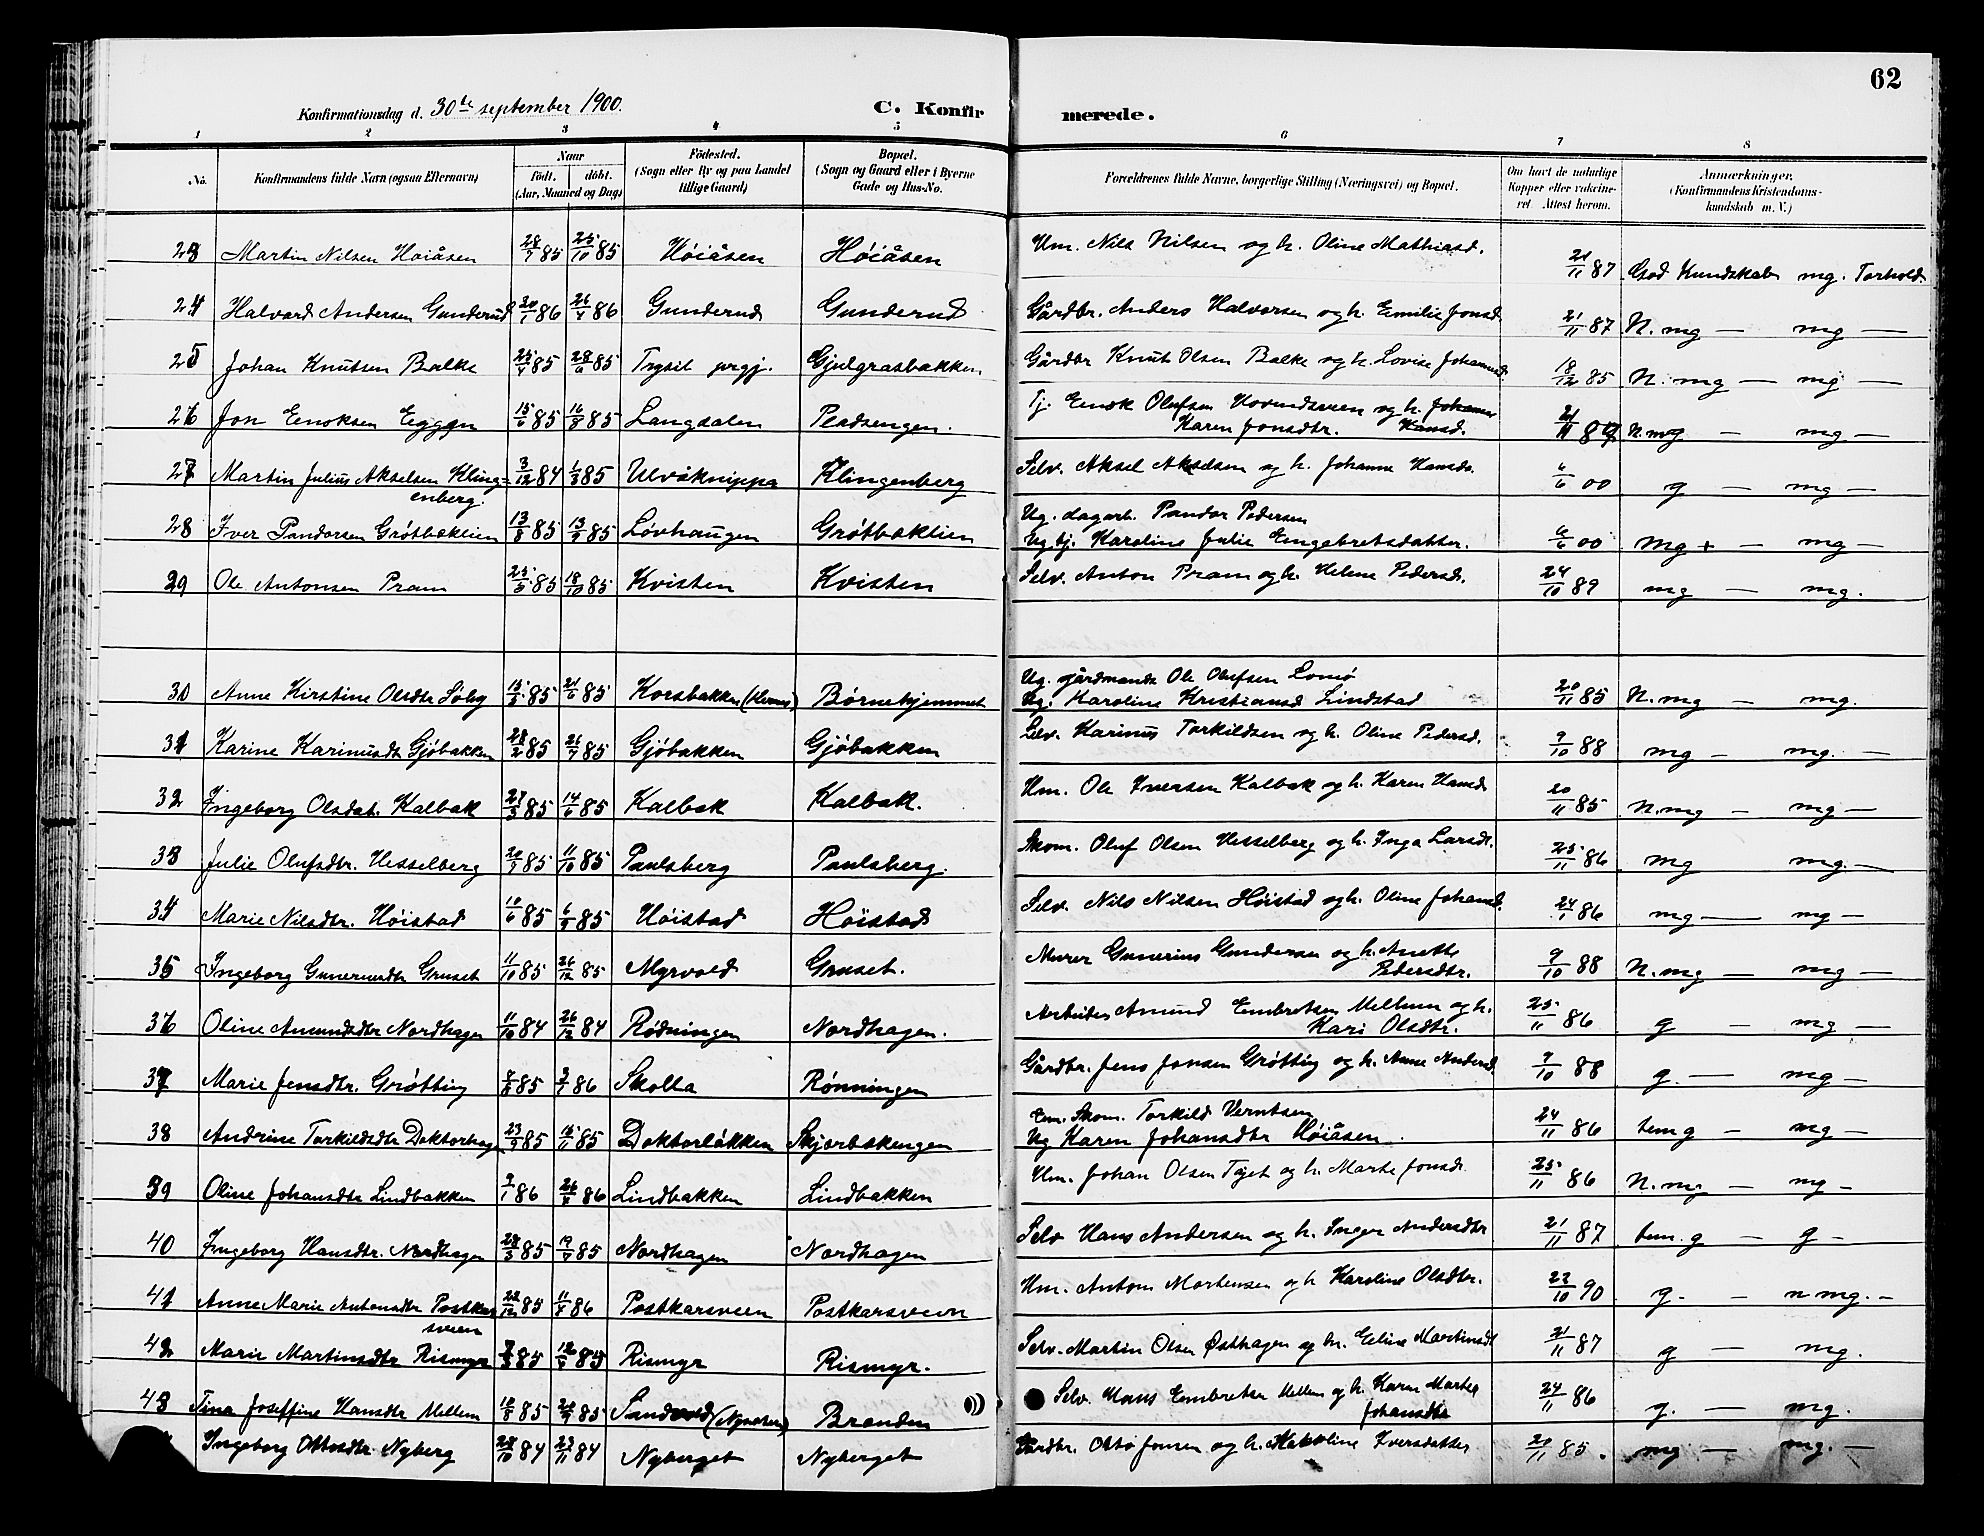 62
Konfirmationsdag d. 30te september 1900.
C. Konfirmerede.
1 2 3 4 5 6 7 8
No. Konfirmandens fulde Navn (ogsaa Efternavn) Naar födt. döbt. (Aar, Maaned og Dag) Födested. (Sogn eller By og paa Landet tillige Gaard) Bopæl. (Sogn og Gaard eller i Byerne Gade og Hus-No. Forældrenes fulde Navne, borgerlige Stilling (Næringsvei) og Bopæl. Om havt de naturlige Kopper eller vakcineret. Attest herom. Anmærkninger. (Konfirmandens Kristendomskundskab m. V.)
23 Martin Nilsen Høiåsen 28/7 85 25/10 85 Høiåsen Høiåsen Um. Nils Nilsen og h. Oline Mathiasd. 21/11 87 God Kundskab mg. Forhold
24 Halvard Andersen Gunderud 20/1 86 26/4 86 Gunderud Gunderud Gårdbr. Anders Halvorsen og h. Emilie Jonsd. 21/11 87 N. mg — mg —
25 Johan Knutsen Balke 25/4 85 28/6 85 Trysil prgj. Gjelgrasbakken Gårdbr Knut Olsen Balke og h. Lovise Johannsd. 18/12 85 N. mg — mg —
26 Jon Enoksen Eggen 15/6 85 16/8 85 Langdalen Pladsengen. Tj. Enok Olufsen Hovindsveen og h. Johanne Hansd.
Karen Jonsdtr. 21/11 89 N. mg — mg —
27 Martin Julius Akselsen Klingenberg. 3/12 84 1/3 85 Ulvåknippa Klingenberg Selv. Aksel Akselsen og h. Johanne Hansd. 6/6 00 g — mg —
28 Iver Pandorsen Grøtbæklien 13/8 85 13/9 85 Løvhaugen Grøtbæklien Ug. dagarb. Pandor Pedersen
Ug. tj. Karoline Julie Engebretsdatter. 6/6 00 mg + — mg —
29 Ole Antonsen Pram 25/5 85 18/10 85 Kvisten Kvisten Selv. Anton Pram og h. Helene Pedersd. 24/10 89 mg — mg.
30 Anne Kirstine Olsdtr Søby 15/3 85 21/6 85 Korsbakken Børnehjemmet Ug. gårdmand Ole Olufsen Lomø
Ug. Karoline Kristiansd Lindstad 20/11 85 N. mg — mg.
31 Karine Karinusdt Gjøbakken 28/2 85 26/7 85 Gjøbakken Gjøbakken Selv. Karinus Torkildsen og h. Oline Pedersd. 9/10 88 mg — mg. —
32 Ingeborg Olsdat. Kalbak 27/3 85 14/6 85 Kalbak Kalbak. Um. Ole Iversen Kalbak og h. Karen Hansd 20/11 85 N. mg — mg —
33 Julie Olufsdtr. Hesselberg 20/9 85 11/10 85 Paulsberg Paulsberg. Skom. Oluf Olsen Hesselberg og h. Inga Larsdt. 25/11 86 mg mg. —
34 Marie Nilsdtr. Høistad 10/6 85 6/9 85 Høistad Høistad Selv. Nils Nilsen Høistad og h. Oline Johansd. 24/1 86 mg — mg —
35 Ingeborg Gunerusdtr Gruset 11/10 85 26/12 85 Myrvold Gruset. Murer Gunerius Gundersen og h. Anette
Pedersdtr. 9/10 88 N. mg — mg —
36 Oline Amundsdtr Nordhagen 11/10 84 26/12 84 Rødningen Nordhagen. Arbeider Amund Embretsen Mellum og h.
Kari Olsdtr. 25/11 86 g — mg —
37 Marie Jensdtr. Grøtting 8/8 85 3/1 86 Skolla Rønningen Gårdbr. Jens Jonsen Grøtting og h. Anne Andersd. 9/10 88 g. — mg —
38 Andrine Torkildsdtr Doktorhagen 23/9 85 15/11 85 Doktorløkken Skjærbækengen Em. Skom. Torkild Verntsen
Ug Karen Johansdtr Høiåsen. 24/11 86 tem g — mg —
39 Oline Johansdtr Lindbakken 3/1 86 26/4 86 Lindbakken Lindbakken Um. Johan Olsen Tøjet og h. Marte Jonsd. 25/11 86 N. mg — mg —
40 Ingeborg Hansdtr. Nordhagen 28/3 85 19/7 85 Nordhagen Nordhagen Selv Hans Andersen og h. Inger Andersdtr 21/11 87 tem. g — g —
41 Anne Marie Antonsdtr Postkarsveen 22/12 85 11/4 86 Postkarsveen Postkarsveen Um. Anton Mortensen og h Karoline Olsdtr. 22/10 90 g. — n mg. —
42 Marie Martinsdtr Rismyr 7/3 85 12/7 85 Rismyr Rismyr. Selv. Martin Olsen Østhagen og h. Eline Martinsdt 21/11 87 g — mg.
43 Tina Josefine Hansdtr Mellem 10/8 85 20/9 85 Sandvold Branden Selv. Hans Embretsen Mellem og h. Karen Martea
Johansdtr 24/11 86 g. — mg.
Ingeborg Ottosdtr. Nyberg 28/10 84 23/11 84 Nyberget Nyberget Gårdbr. Otto Jonsen og h. Karoline Iversdatter 20/11 85. mg — mg. —